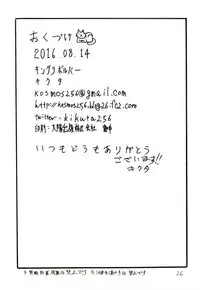 おくづけ
2016.08.14
キングリボルバー
キクタ
kosmos256@gmail.com
http://kosmos256.blog26.fc2.com
twitter→kikuta256
印刷: 大陽出版株式会社
いつもどうもありがとう
ございます!!
キクタ
26